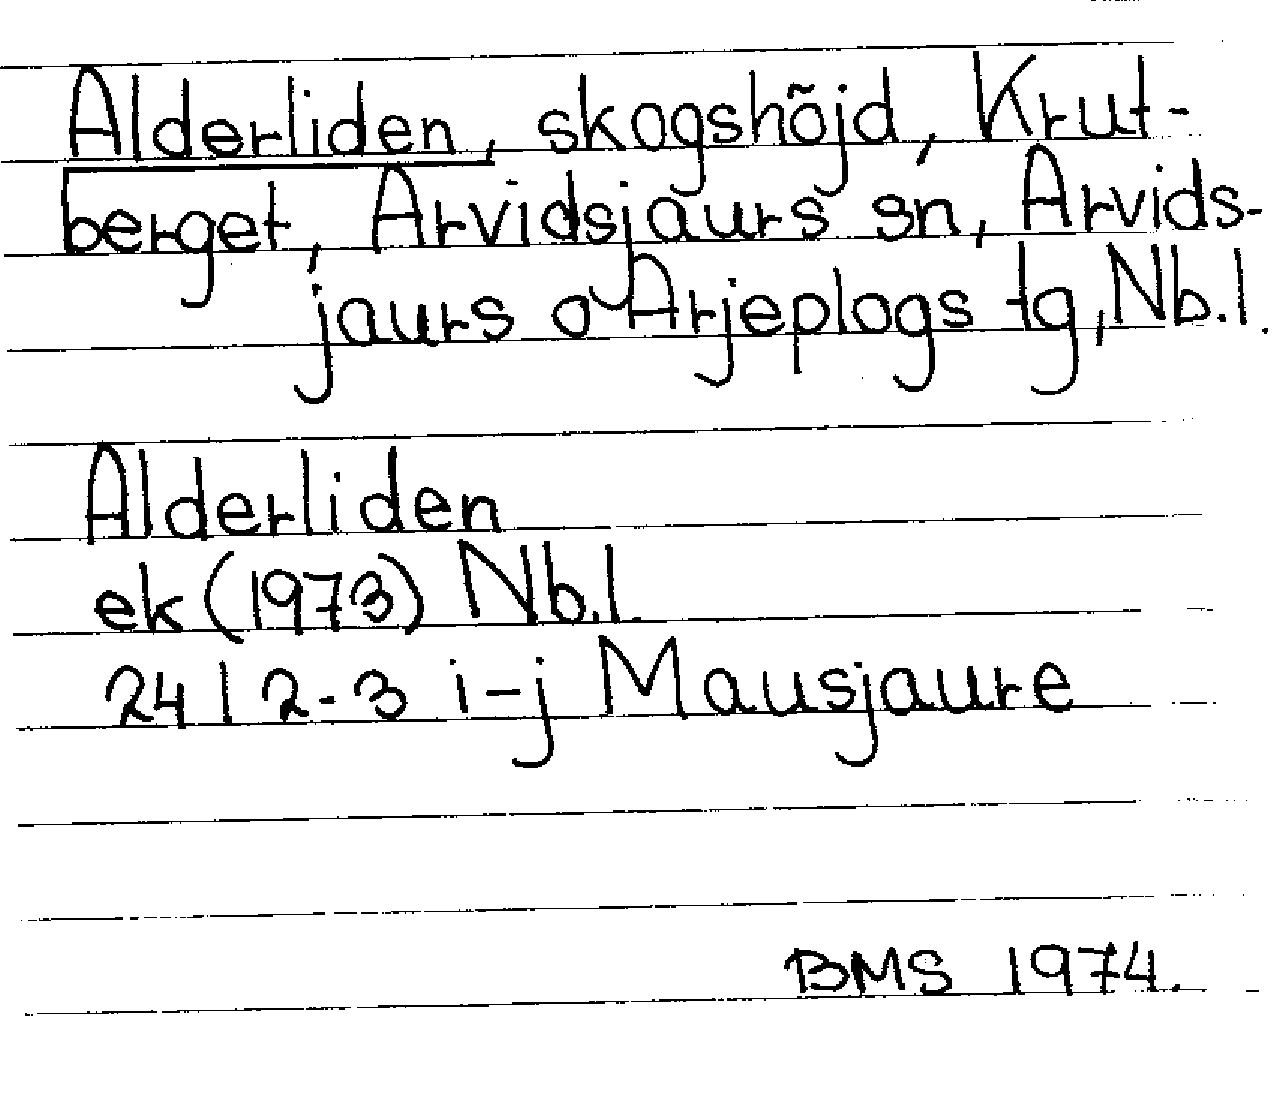 Alderliden, skogshöjd, Krut-
berget, Arvidsjaurs sn, Arvids-
jaurs o Arjeplogs tg, Nb.l.
Alderliden
ek (1973) Nb.l.
24 I 2-3 i-j Mausjaure
BMS 1974.